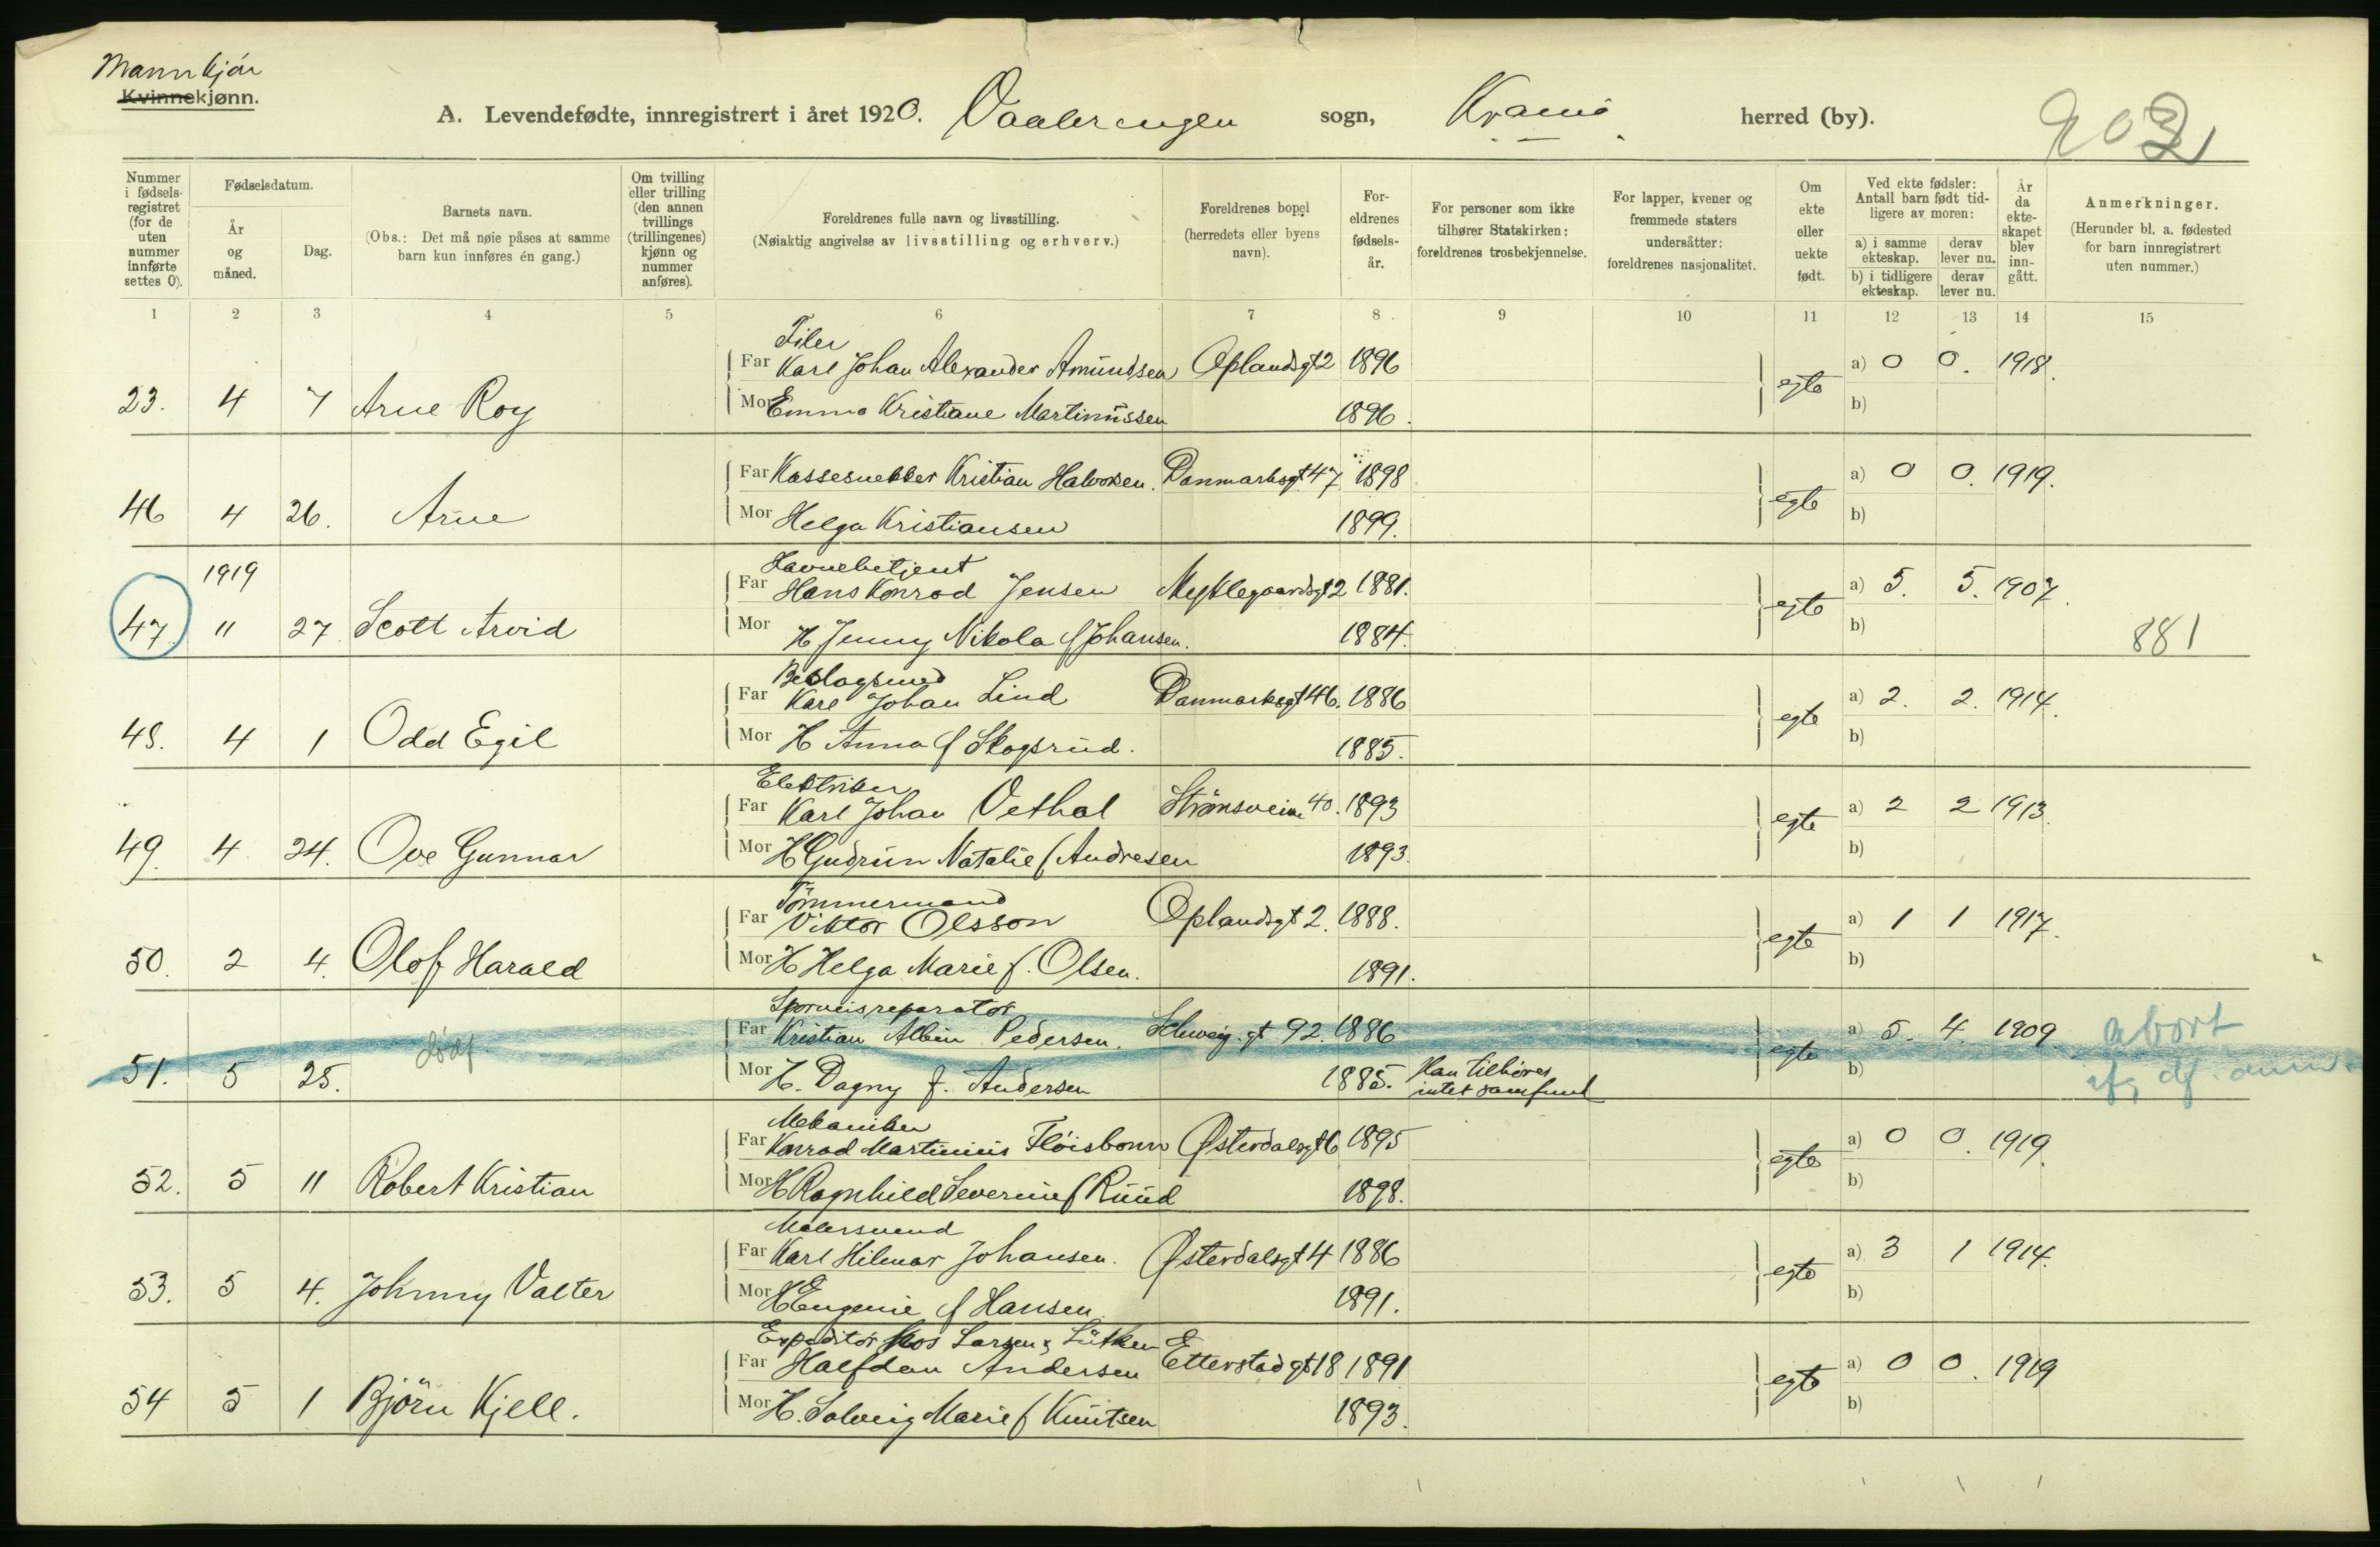 Mannkjön
Kvinnekjønn.
A. Levendefødte, innregistrert i året 1920. Vaalerengen sogn, Krania herred (by).
202
Nummer i fødselsregistret (for de uten nummer innførte settes 0).
Fødselsdatum.
År og måned.
Dag.
Barnets navn.
(Obs.: Det må nøie påses at samme barn kun innføres én gang.)
Om tvilling eller trilling (den annen tvillings (trillingenes) kjønn og nummer anføres).
Foreldrenes fulle navn og livsstilling.
(Nøiaktig angivelse av livsstilling og erhverv.)
Foreldrenes bopel (herredets eller byens navn).
Foreldrenes fødselsår.
For personer som ikke tilhører Statskirken: foreldrenes trosbekjennelse.
For lapper, kvener og fremmede staters undersåtter: foreldrenes nasjonalitet.
Om ekte eller uekte født.
Ved ekte fødsler: Antall barn født tidligere av moren:
a) i samme ekteskap. derav lever nu.
b) i tidligere ekteskap. derav lever nu.
År da ekteskapet blev inngått.
Anmerkninger.
(Herunder bl. a. fødested for barn innregistrert uten nummer.)
1 2 3 4 5 6 7 8 9 10 11 12 13 14 15
Filer
Far Karl Johan Alexander Amundsen Oplandsgt 2 1896 a) 0 0. 1918.
23. 4 7 Arne Roy Mor Emma Kristiane Martinussen 1896. egte b)
Far Kassesnekker Kristian Halvorsen. Danmarksgt 47. 1898 a) 0 0. 1919.
46 4 26. Arne Mor Helga Kristiansen 1899. egte b)
1919 Havnebetjent
Far Hans Konrad Jensen Myklegaardsgt 2 1881. a) 5. 5. 1907.
47 11 27. Scott Arvid Mor H Jenny Nikola f Johansen. 1884. egte b) 881
Beslagsmed
Far Karl Johan Lind Danmarksgt 46. 1886 a) 2. 2. 1914.
48. 4 1 Odd Egil Mor H Anna f Skogsrud. 1885. egte b)
Elektriker
Far Karl Johan Vethal Strömsvein 40. 1893 a) 2 2 1913.
49. 4 24. Ove Gunnar Mor H Gudrun Natalie f Andresen 1893. egte b)
Tömmermand
Far Viktor Olsson Oplandsgt 2. 1888. a) 1 1 1917.
50. 2 4. Olof Harald Mor H Helga Marie f. Olsen. 1891. egte b)
Sporveisreparatör
Far Kristian Albin Pedersen. Schweig. gt 92. 1886 a) 5. 4. 1909. abort
51. 5 25. dödf Mor H. Dagny f. Andersen 1885. Han tilhörer intet samfund egte b)
Mekaniker
Far Konrad Martinius Flöisbonn Østerdalsgt 6 1895 a) 0 0. 1919.
52. 5 11 Robert Kristian Mor H Ragnhild Severine f Ruud 1898. egte b)
Malersvend
Far Karl Hilmar Johansen. Østerdalsgt 4 1886 a) 3 1 1914.
53. 5 4. Johnny Valter Mor H Eugenie f Hansen. 1891. egte b)
Expeditör hos Larsen & Lütken
Far Halfdan Andersen Etterstadgt 18 1891 a) 0 0. 1919
54 5 1 Björn Kjell. Mor H. Solveig Marie f Knutsen 1893. egte b)